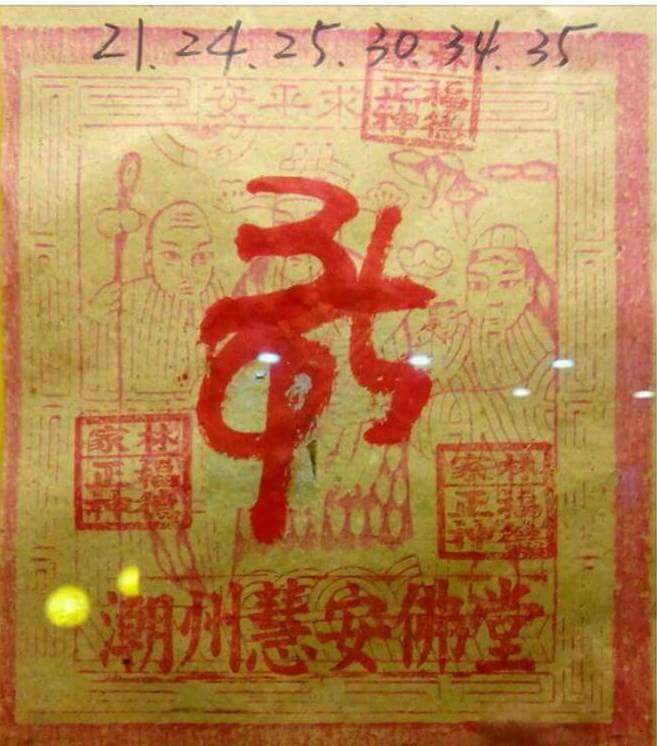 21. 24. 25. 30. 34. 35
求平安
林福德
家正神
林福德
家正神
林福德
家正神
潮州慧安佛堂